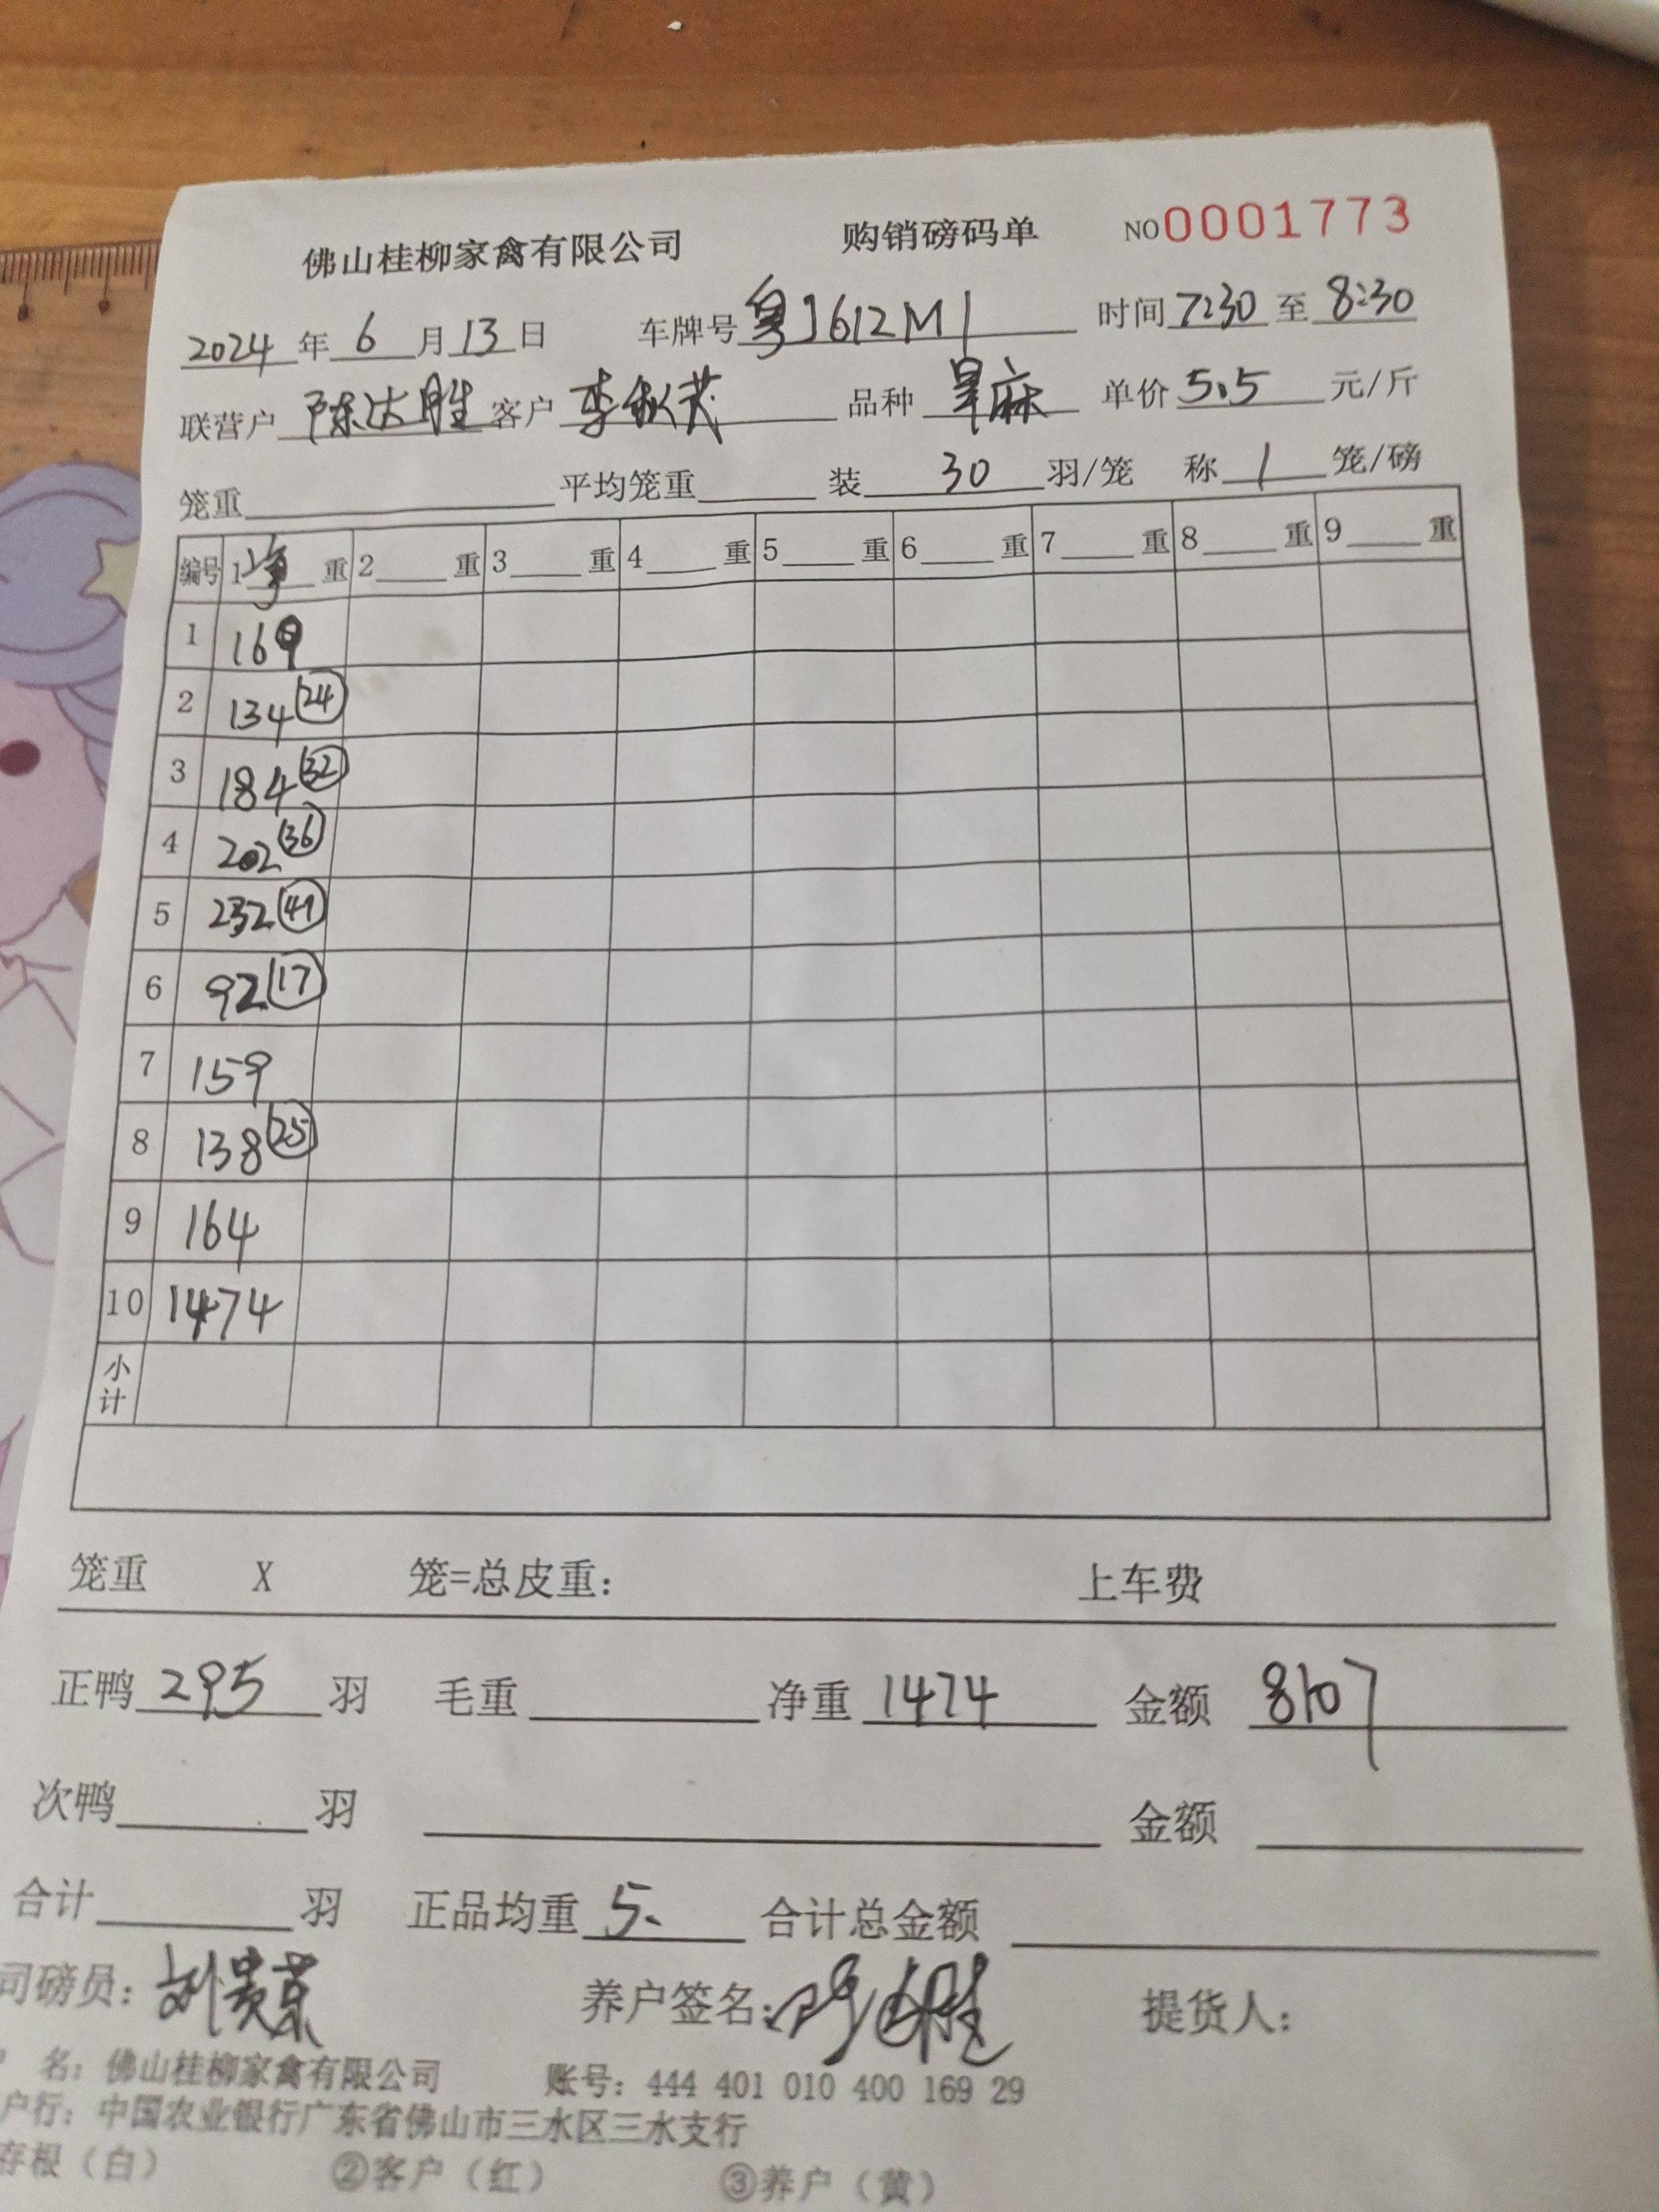 佛山桂柳家禽有限公司 购销磅码单 NO 0001773
2024年6月13日 车牌号粤J612M1 时间7:30至8:30
联营户 陈达胜 客户 李秋茂 品种 麻 单价5.5元/斤
笼重 平均笼重 装30羽/笼 称1笼/磅
编号 1净重 2 重 3 重 4 重 5 重 6 重 7 重 8 重 9 重
1 169
2 134 24
3 184 32
4 202 36
5 232 41
6 92 17
7 159
8 138 25
9 164
10 1474
小计
笼重 X 笼=总皮重: 上车费
正鸭295羽 毛重 净重1474 金额8107
次鸭 羽 金额
合计 羽 正品均重5. 合计总金额
司磅员: 刘贵荣 养户签名: 提货人:
名: 佛山桂柳家禽有限公司 账号: 444 401 010 400 169 29
户行: 中国农业银行广东省佛山市三水区三水支行
存根（白） ②客户（红） ③养户（黄）